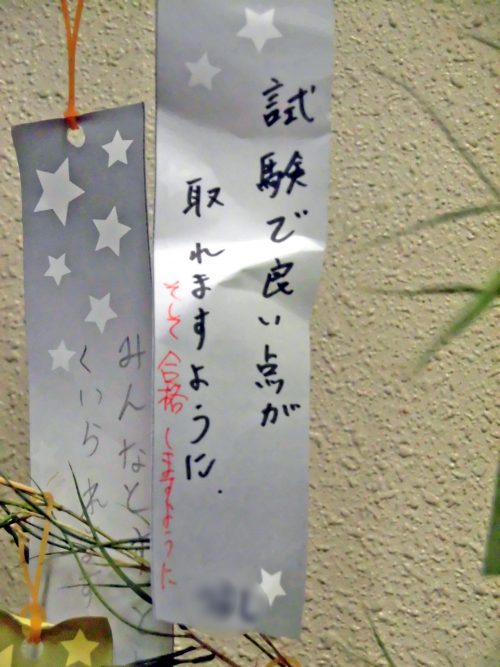 試験で良い点が
取れますように.
そして合格しますように
みんなと
くいられ